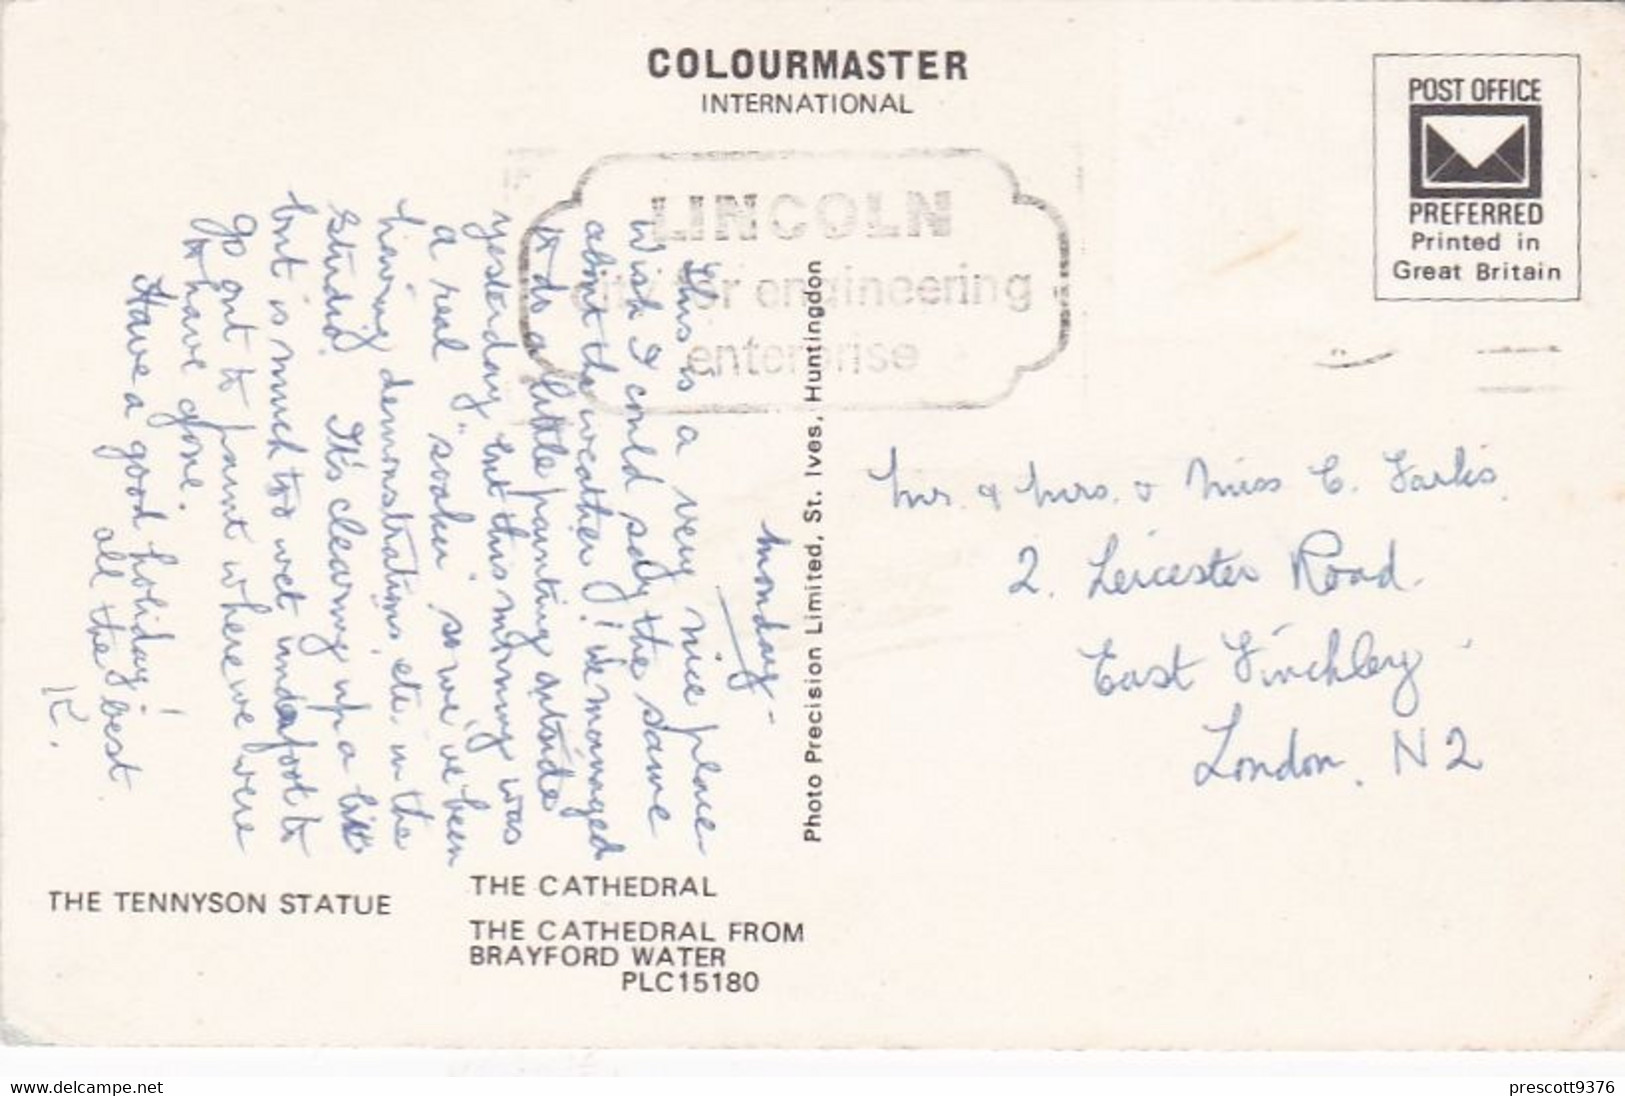 COLOURMASTER
INTERNATIONAL
POST OFFICE
PREFERRED
Printed in
Great Britain
LINCOLN
city for engineering
enterprise
Monday -
This is a very nice place
Wish I could say the same
about the weather! We managed
to do a little painting outside
yesterday but this morning was
a real "soaker" so we've been
having demonstrations, etc. in the
studio. It's clearing up a bit
but is much too wet underfoot to
go out to paint where we were
to have gone.
Have a good holiday!
all the best
K.
Photo Precision Limited, St. Ives, Huntingdon
Mr. & Mrs. & Miss C. Farlis
2. Leicester Road.
East Finchley
London. N2
THE TENNYSON STATUE
THE CATHEDRAL
THE CATHEDRAL FROM
BRAYFORD WATER
PLC15180
www.delcampe.net
prescott9376